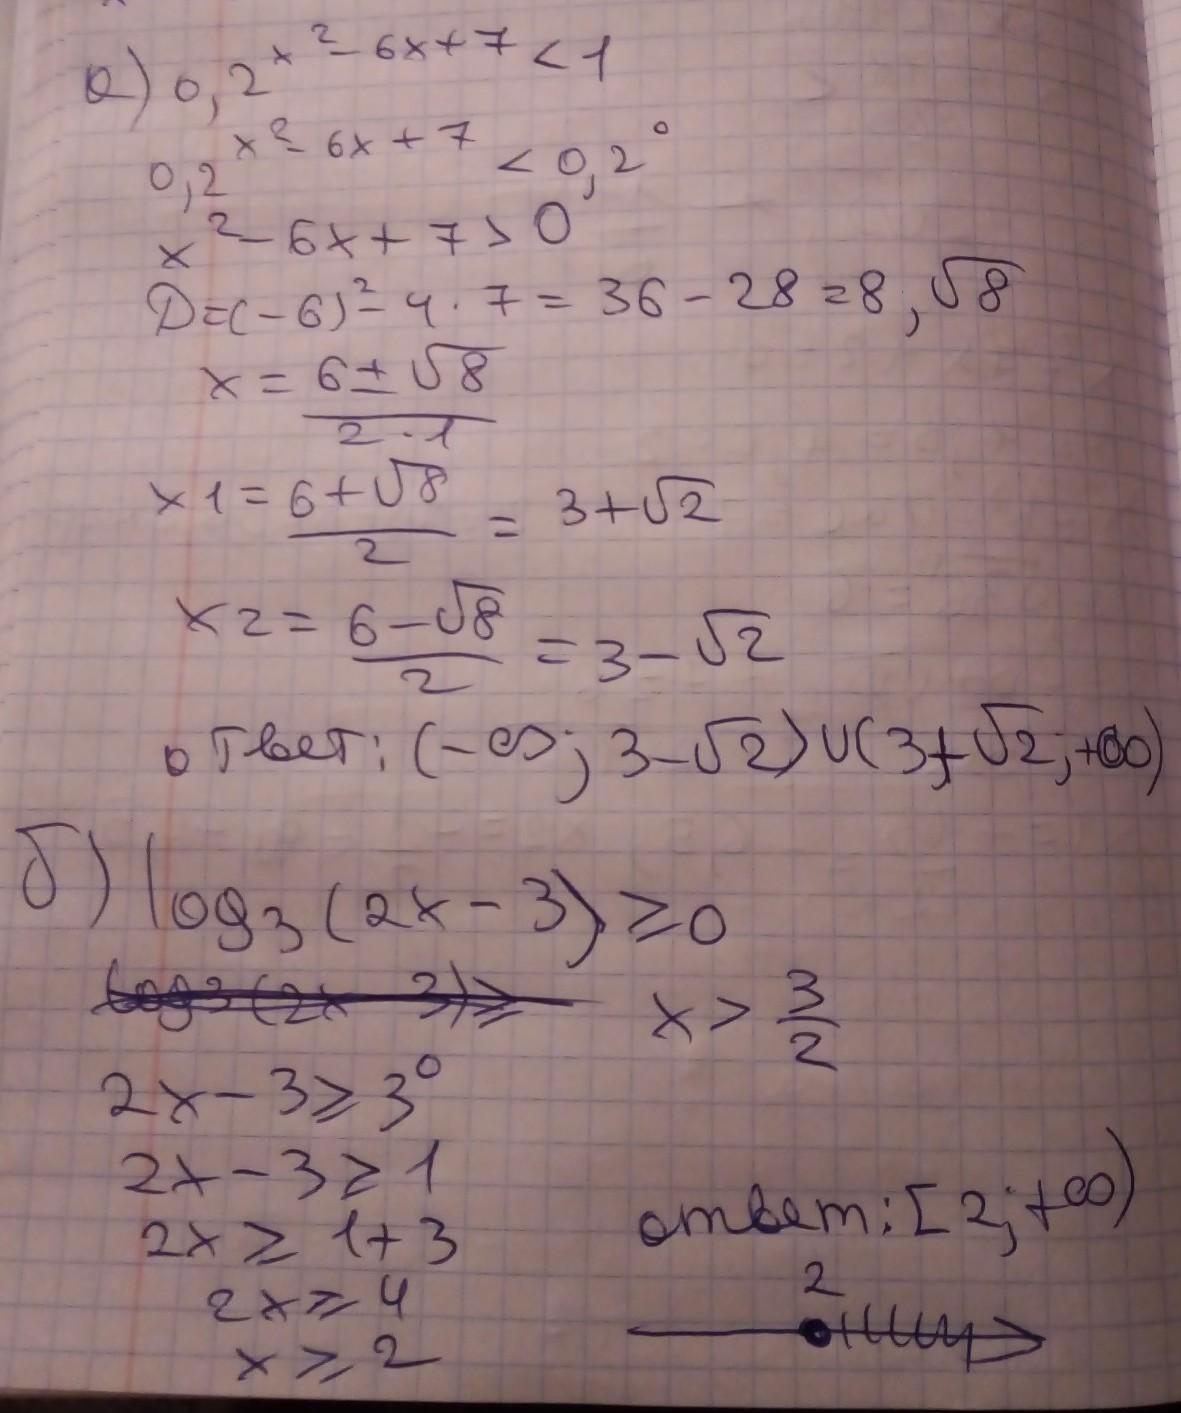 а) 0,2^(x²-6x+7) < 1
0,2^(x²-6x+7) < 0,2⁰
x²-6x+7>0
D=(-6)²-4·7=36-28=8, √8
x = (6±√8)/(2·1)
x1 = (6+√8)/2 = 3+√2
x2 = (6-√8)/2 = 3-√2
ответ: (-∞; 3-√2)∪(3+√2; +∞)
б) log₃(2x-3)≥0
log3(2x 3)≥
x > 3/2
2x-3≥3⁰
2x-3≥1
2x≥1+3
2x≥4
x≥2
ответ: [2; +∞)
2